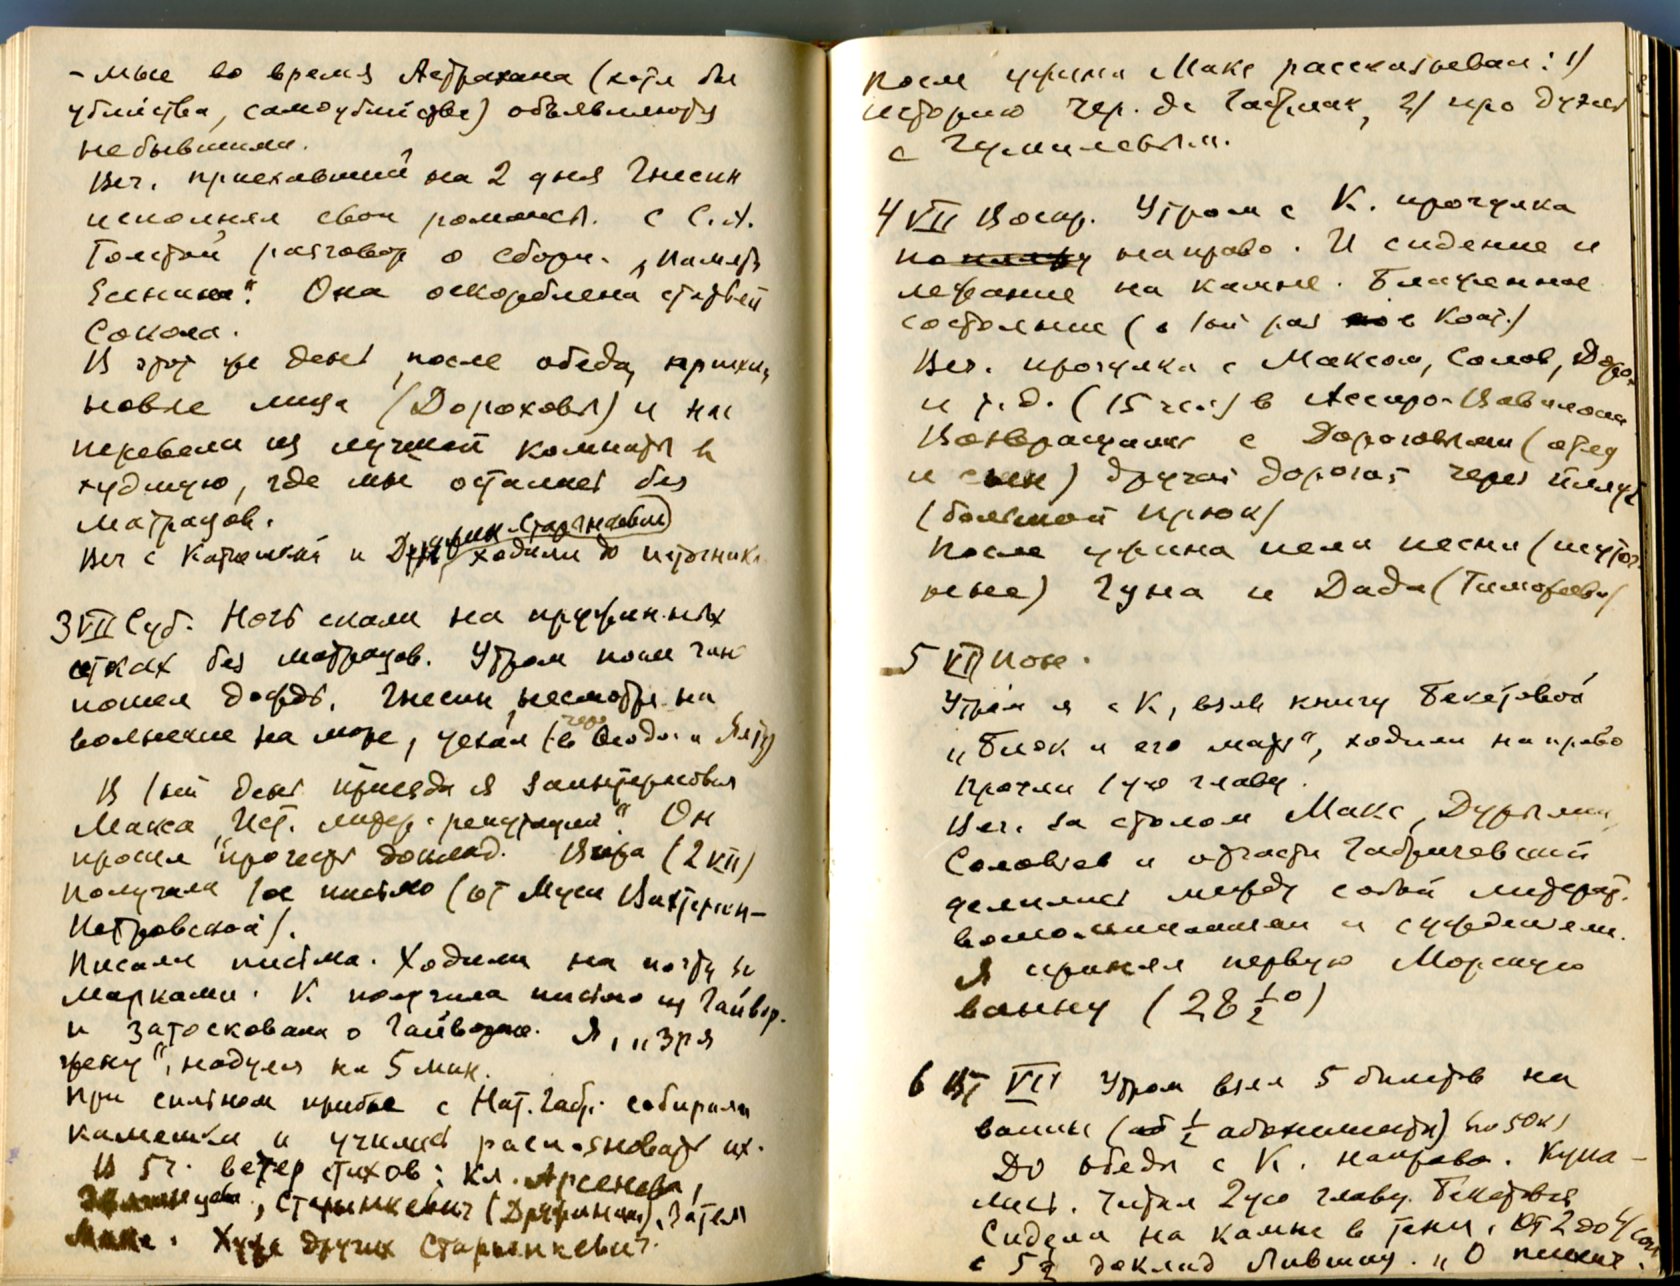 -мые во время Астрахана (хотя бы
убийства, самоубийства) объявляются
небывшими.
Веч. приехавший на 2 дня Гнесин
исполнял свои романсы. С С.А.
Толстой разговор о сборн. „Память
Есенина". Она оскорблена статьей
Сокола.
В этот же день, после обеда,
новые лица (Дороховы) и нас
перевели из лучшей комнаты в
худшую, где мы остались без
матрацов.
Веч с Катюшкой и ходили до источника
3 VII Суб. Ночь спали на пружинных
сетках без матрацов. Утром после чая
пошел дождь. Гнесин, несмотря на
волнение на море, уехал (в Феодос. и Ялту)
В 1ый день приезда я заинтересовал
Макса „Ист. литер. репутации". Он
просил прочесть доклад. Вчера (2 VII)
получили 1ое письмо (от Муси
Петровской).
Писали письма. Ходили на почту за
марками. К. получила письмо из Гайвор.
и затосковала о Гайвороне. Я, „зря
жену", надулся на 5 мин.
При сильном прибое с Нат. Габр. собирали
камешки и учились распознавать их.
В 5 ч. вечер стихов: Кл. Арсенева,
Старынкевич (Дружинин), Затем
Макс. Хуже других Старынкевич.
После ужина Макс рассказывал: 1)
историю Чер. де Габриак, 2) про дуэль
с Гумилевым.
4 VII Воскр. Утром с К. прогулка
по пляжу направо. И сидение и
лежание на камне. Блаженное
состояние (в 1ый раз в Кокт.)
Веч. прогулка с Максом, Солов, Доро.
и т.д. (15 чел.) в Ассиро-Вавилонию
Возвращались с Дороховыми (отец
и сын) другой дорогой через пляж
(большой крюк)
После ужина пели песни (шуточ
ные) Гуна и Дада (Тимофеевы)
5 VII Пон.
Утром я с К, взяв книгу Бекетовой
„Блок и его мать", ходили направо
Прочли 1ую главу.
Веч. за столом Макс, Дурылин,
Соловьев и отчасти Габричевский
делились между собой литерат.
воспоминаниями и суждениями.
Я принял первую Морскую
ванну (28 ½°)
6 Вт VII Утром взял 5 билетов на
ванны (от ½ абонемента) по 50 к)
До обеда с К. направо. Купа-
лись. Читал 2ую главу Бекетовой
Сидели на камне в тени. От 2 до 4 сон
с 5 ½ доклад „О